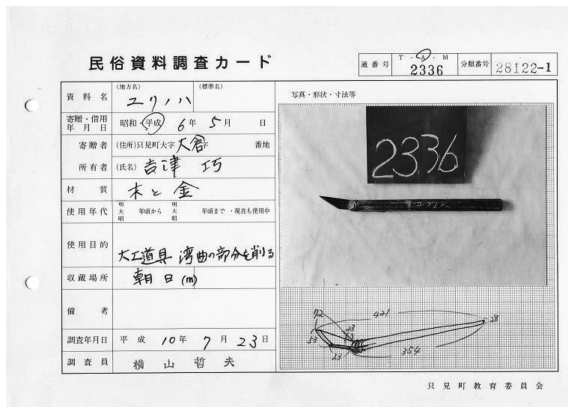 民俗資料調査カード
通番号 T・A・M 2336 分類番号 28122-1
資料名 (地方名) (標準名)
写真・形状・寸法等
寄贈・借用年月日 昭和・平成 6年 5月 日
寄贈者 (住所)只見町大字 大倉 字 番地
所有者 (氏名) 吉津 巧
材質 木と金
使用年代 明大昭 年頃から 明大昭 年頃まで・現在も使用中
使用目的 大工道具 湾曲の部分を削る
収蔵場所 朝日(m)
備考
調査年月日 平成 10年 7月 23日
調査員 横山哲夫
2336
72 421 28
53 23
23 354
只見町教育委員会